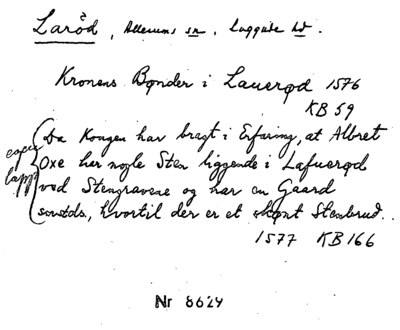 Laröd, Allerums sn, Luggude hd.
Kronens Bønder i Lauerød 1576
KB 59
Da Kongen har bragt i Erfaring, at Albret
Oxe har nogle Sten liggende i Lafuerød
ved Stengravene og har en Gaard
smstds., hvortil der er et skønt Stenbrud.
1577 KB 166
Nr 8629